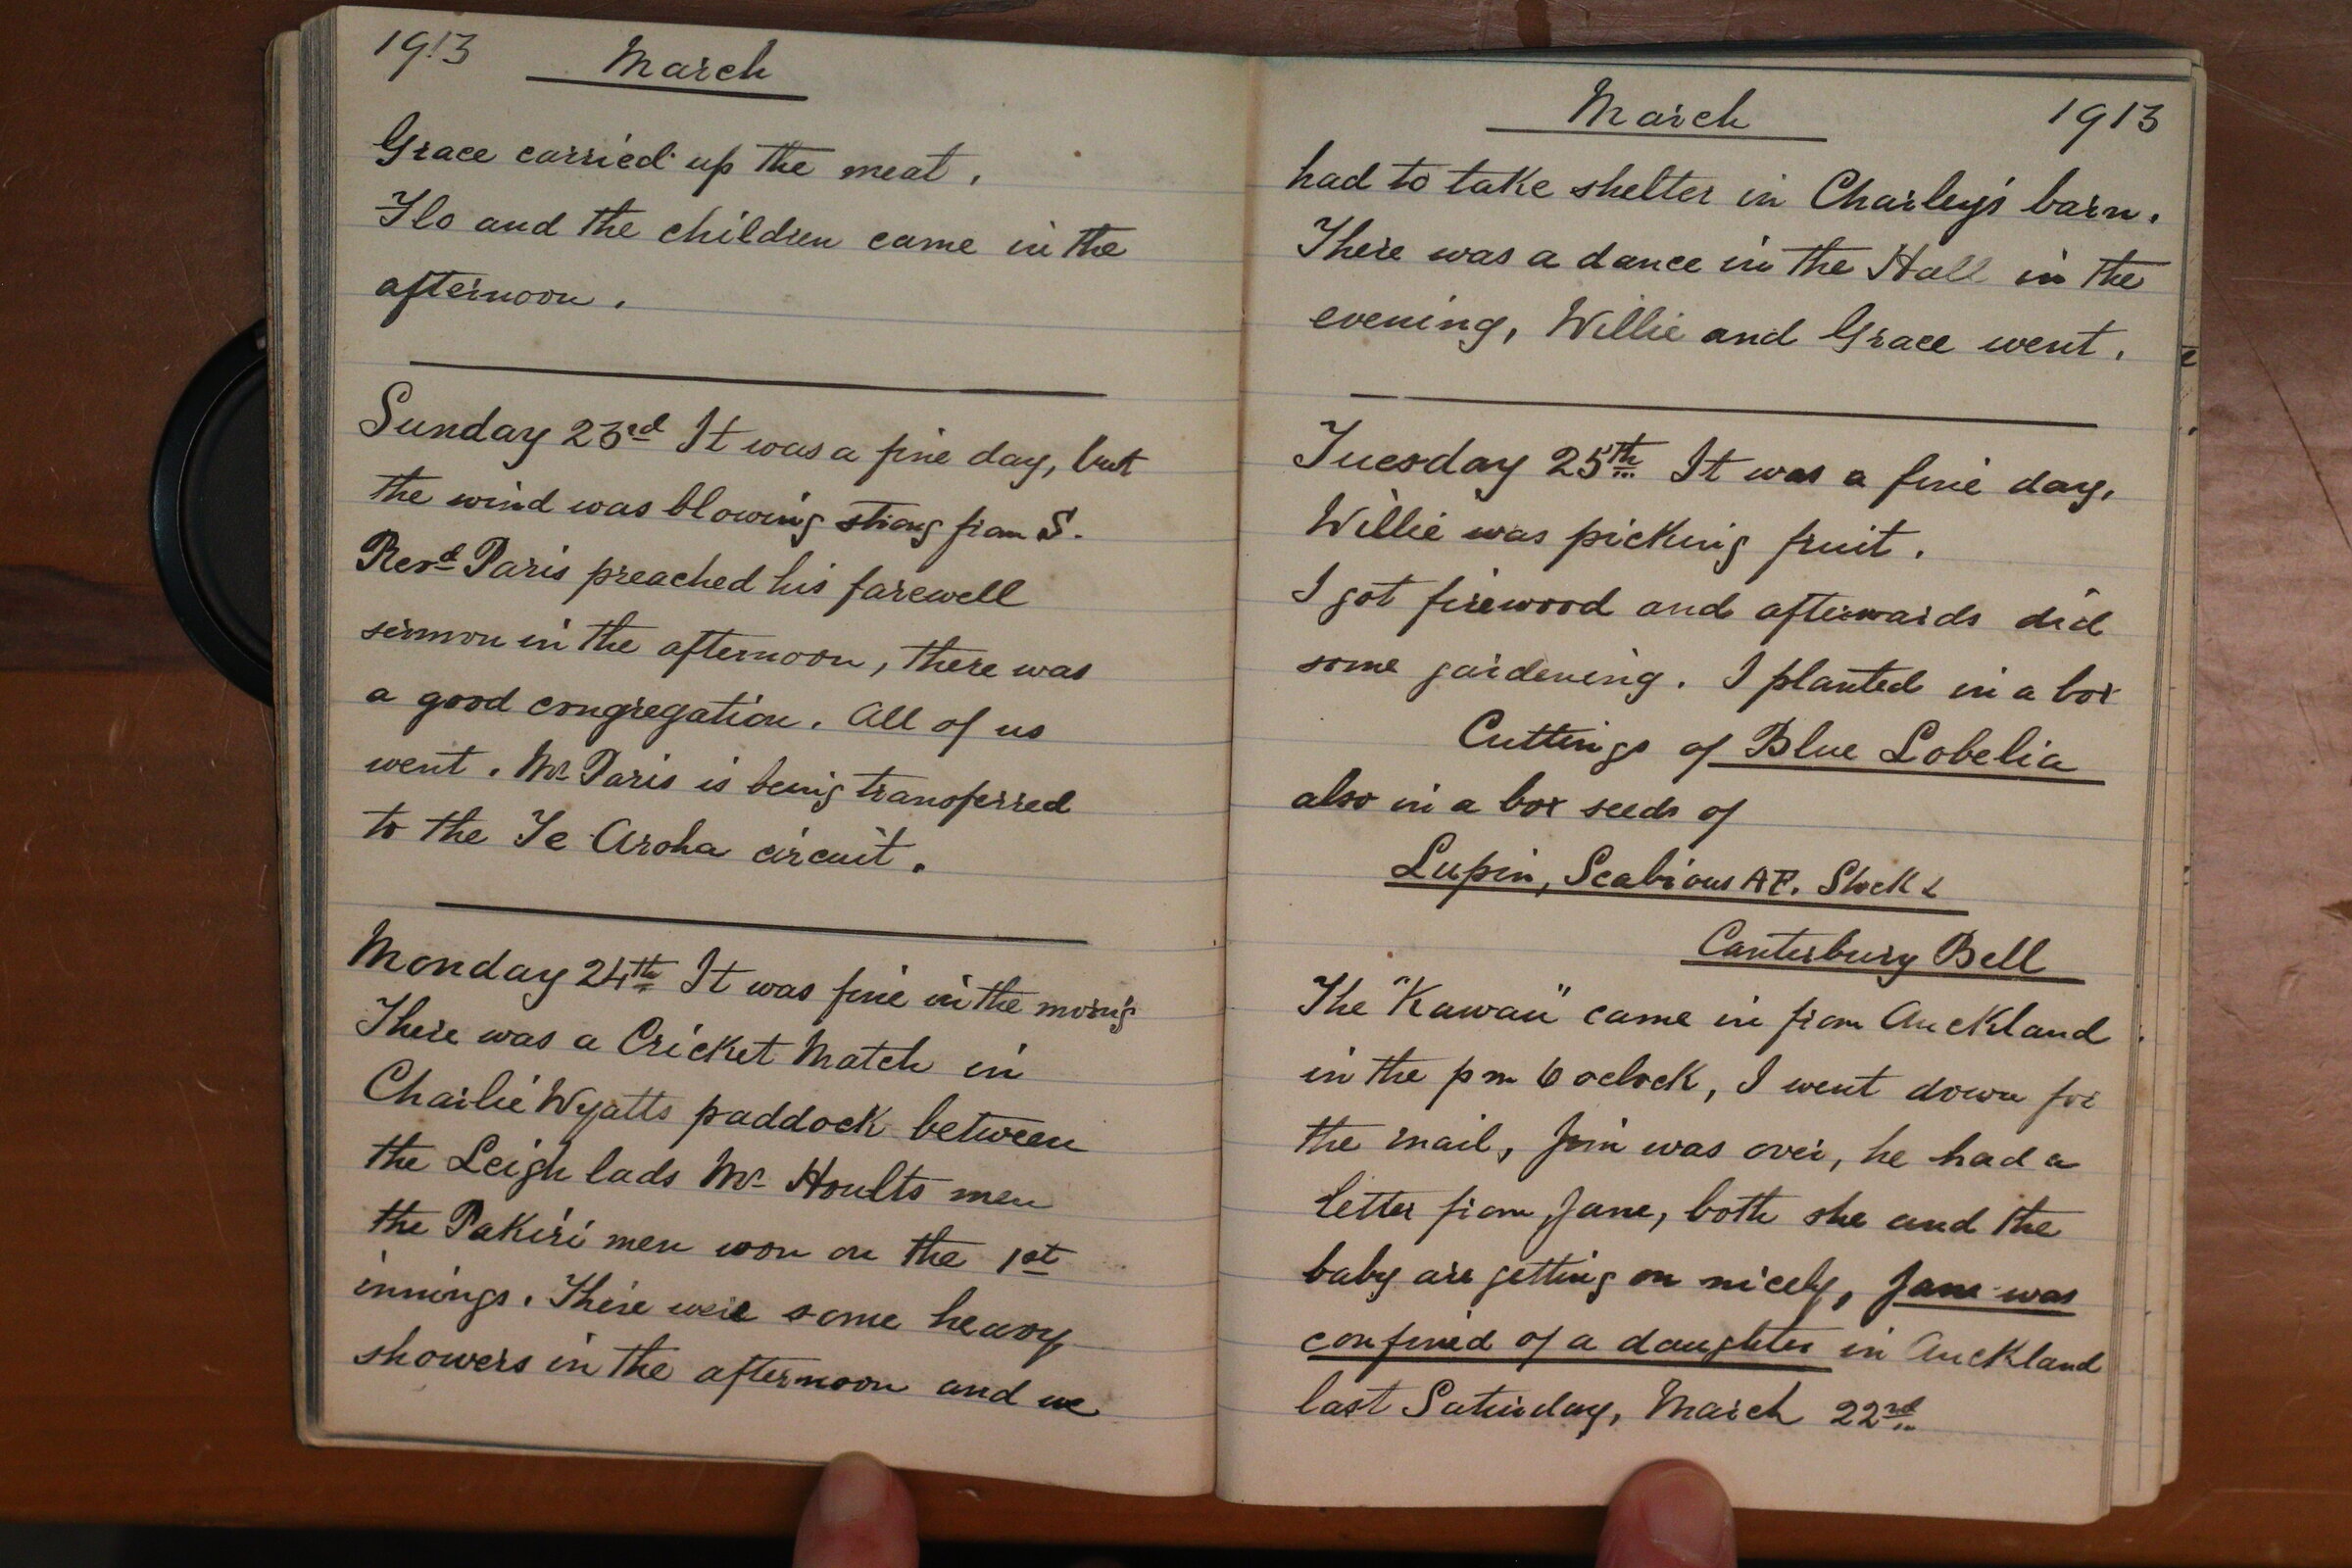 1913 March
Grace carried up the meat.
Flo and the children came in the
afternoon.
Sunday 23rd It was a fine day, but
the wind was blowing strong from S.
Revd Paris preached his farewell
sermon in the afternoon, there was
a good congregation. All of us
went. Mr Paris is being transferred
to the Te Aroha circuit.
Monday 24th It was fine in the morng
There was a Cricket Match in
Charlie Wyatts paddock between
the Leigh lads Mr Hoults men
the Pakiri men won on the 1st
innings. There were some heavy
showers in the afternoon and we
March 1913
had to take shelter in Charley's barn.
There was a dance in the Hall in the
evening, Willie and Grace went.
Tuesday 25th It was a fine day.
Willie was picking fruit.
I got firewood and afterwards did
some gardening. I planted in a box
Cuttings of Blue Lobelia
also in a box seeds of
Lupin, Scabious Stock &
Canterbury Bell
The "Kawau" came in from Auckland
in the pm 6 oclock, I went down for
the mail, Jim was over, he had a
letter from Jane, both she and the
baby are getting on nicely, Jane was
confined of a daughter in Auckland
last Saturday, March 22nd